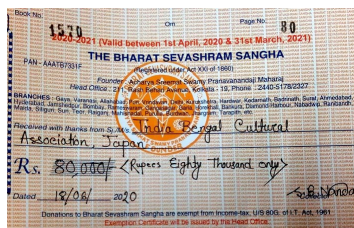 Book No. Om Page No.
1570 80
2020-2021 (Valid between 1st April, 2020 & 31st March, 2021)
THE BHARAT SEVASHRAM SANGHA
PAN - AAATB7331F (Registered under Act XXI of 1860)
Founder Acharya Sreemat Swamy Pranavanandaji Maharaj
Head Office : 211, Rash Behari Avenue, Kolkata - 19, Phone : 2440-5178/2327
BRANCHES : Gaya, Varanasi, Allahabad, Puri, Vrindavan, Delhi, Kurukshetra, Hardwar, Kedarnath, Badrinath, Surat, Ahmedabad,
Hyderabad, Jamshedpur, Bombay, Rameswaram, Diamond Harbour, Nabadwip, Ranibandh,
Malda, Siliguri, Suri, Teor, Raiganj, Purulia, Tarapith, etc.
Received with thanks from Sj./M/s India Bengal Cultural
Association, Japan
Rs. 80,000/- <Rupees Eighty Thousand only>
Dated 18/06/ 2020
Donations to Bharat Sevashram Sangha are exempt from Income-tax, U/S 80G. of I.T. Act, 1961
Exemption Certificate will be issued by the Head Office.